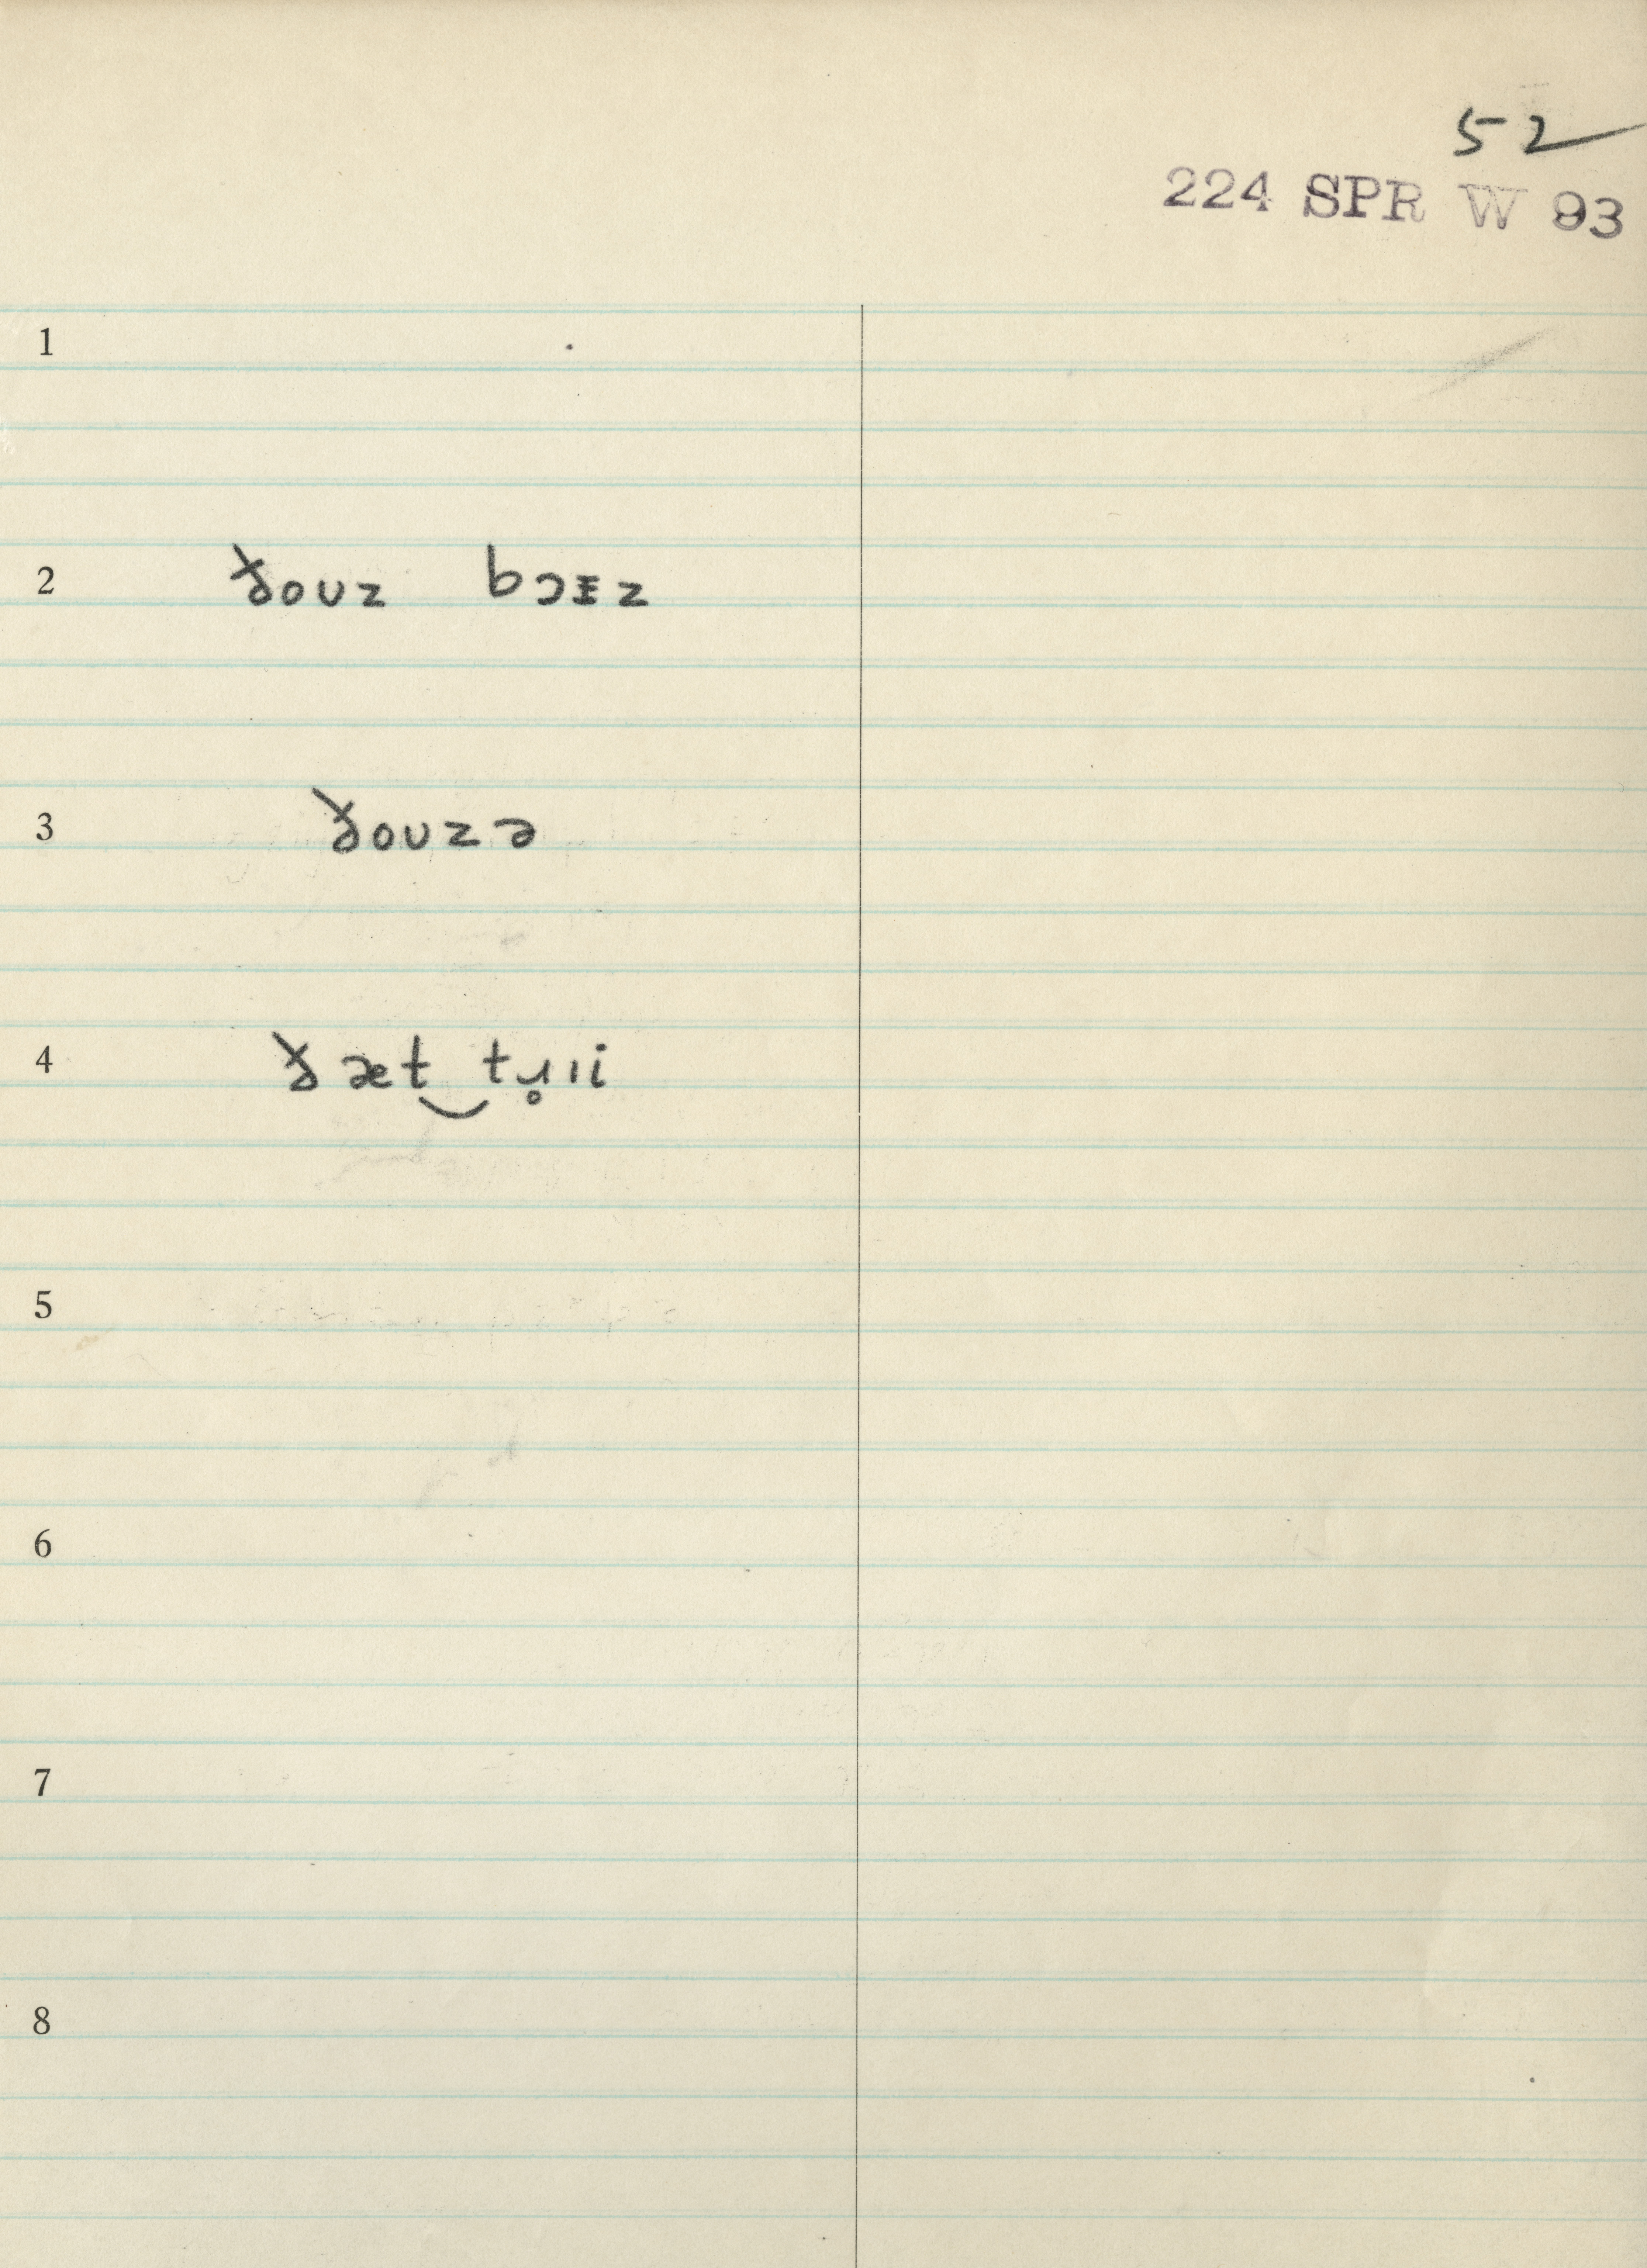 52
224 SPR W 93
1
2 ðoʊz bɔɪz
3 ðoʊzə
4 ðæt‿tɹ̥ɪi
5
6
7
8